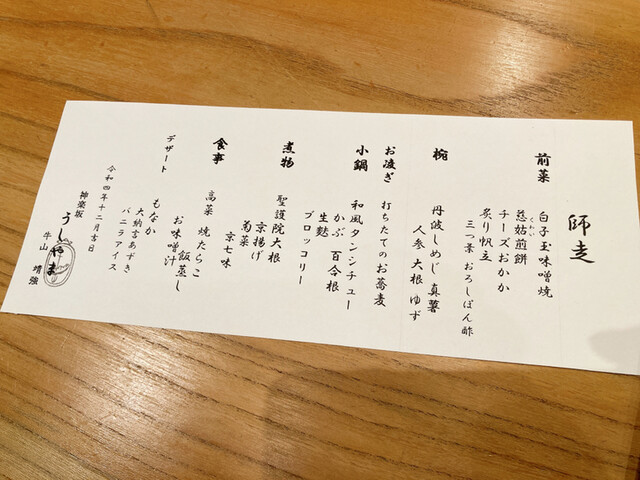 師走
前菜
白子玉味噌焼
慈姑煎餅
くわい
チーズおかか
炙り帆立
三つ葉 おろしぽん酢
椀
丹波しめじ真薯
人参 大根 ゆず
お凌ぎ
打ちたてのお蕎麦
小鍋
和風タンシチュー
かぶ 百合根
生麩
ブロッコリー
煮物
聖護院大根
京揚げ
菊菜
京七味
食事
高菜 焼たらこ
飯蒸し
お味噌汁
デザート
もなか
大納言あずき
バニラアイス
令和四年十二月吉日
神楽坂
うしやま
牛山 靖強